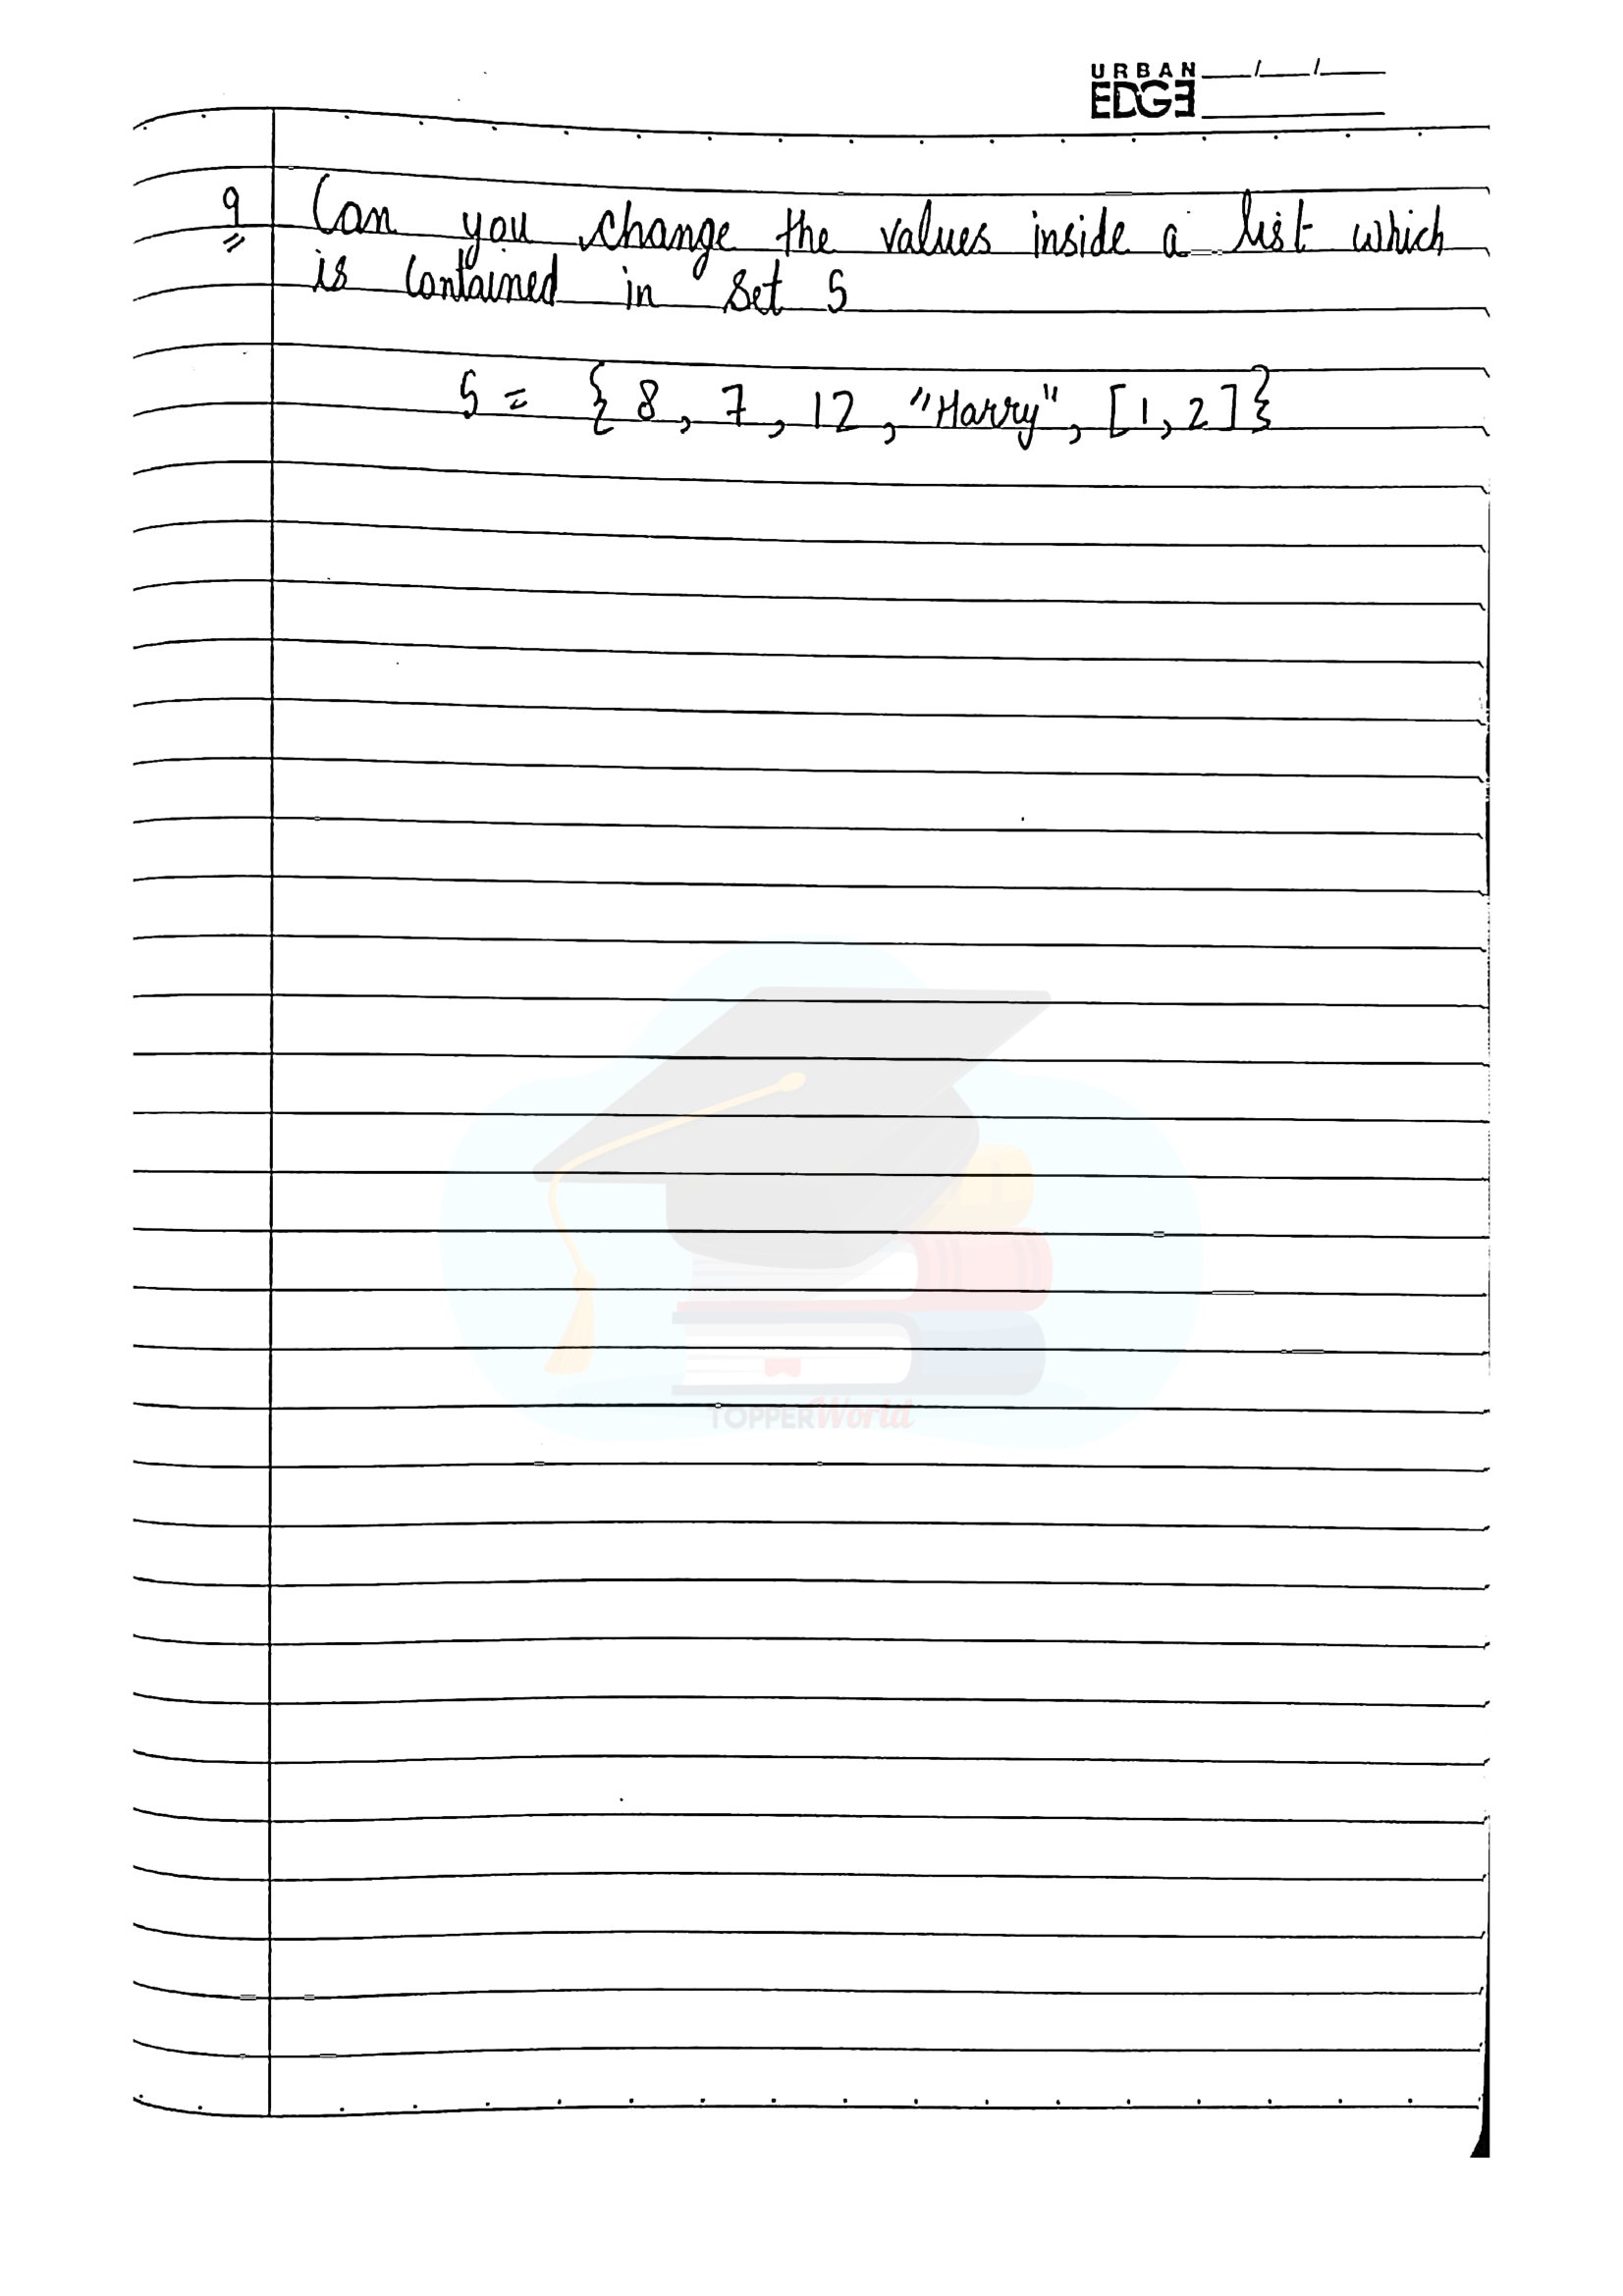 URBAN
EDGE
9 Can you change the values inside a list which
is contained in set S
S = { 8, 7, 12, "Harry", [1, 2] }
TOPPERWorld